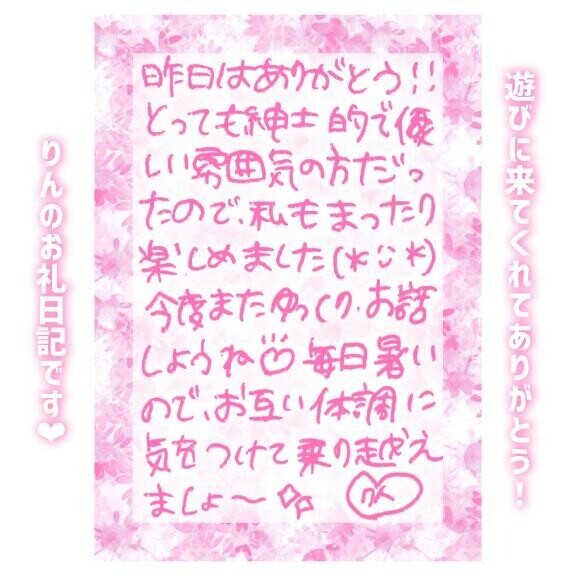 遊びに来てくれてありがとう!
昨日はありがとう!!
とっても紳士的で優
しい雰囲気の方だっ
たので、私もまったり
楽しめました(*¨*)
今度またゆっくり、お話
しようね♡ 毎日暑い
ので、お互い体調に
気をつけて乗り越え
ましょ〜
りんのお礼日記です❤